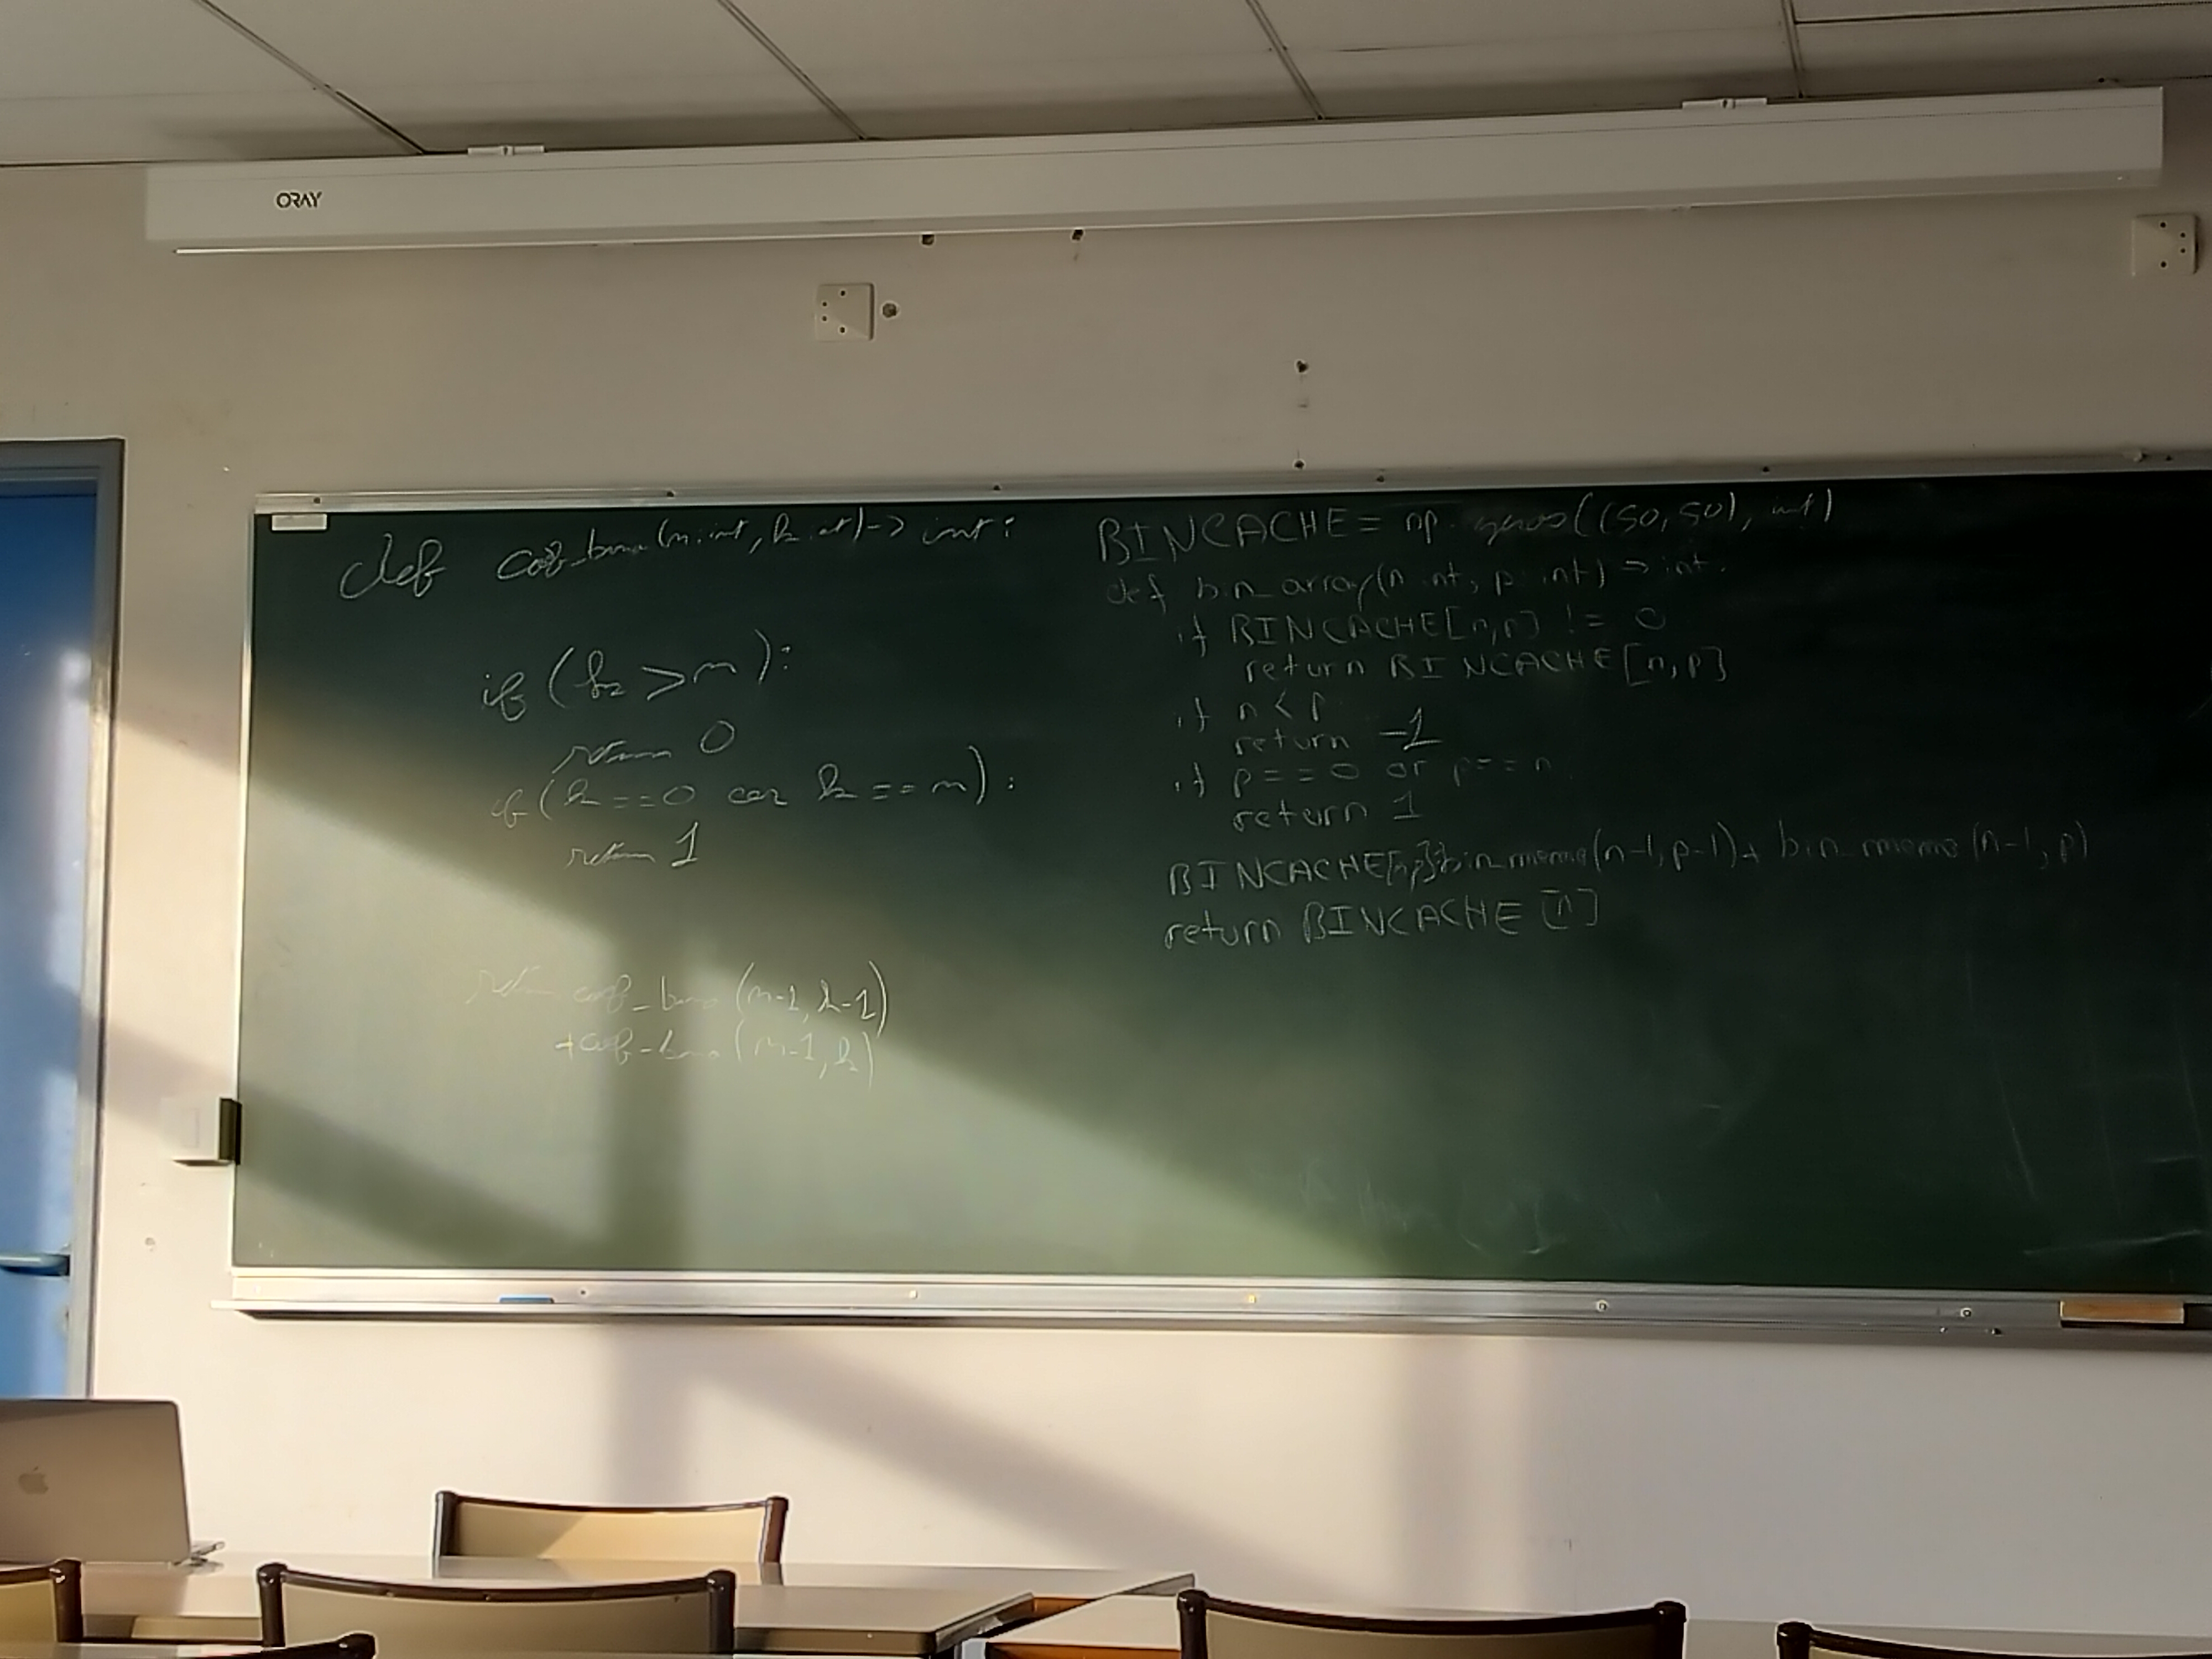 ORAY
def coef_bino(n:int, k:int)-> int:
if (k > n):
return 0
if (k==0 or k==n):
return 1
return coef_bino(n-1, k-1)
+coef_bino(n-1, k)
BINCACHE= np.zeros((50,50), int)
def bin_array(n:int, p:int)->int:
if BINCACHE[n,p] != 0
return BINCACHE[n,p]
if n<p
return -1
if p==0 or p==n:
return 1
BINCACHE[n,p]=bin_memo(n-1,p-1)+ bin_memo(n-1,p)
return BINCACHE[n]